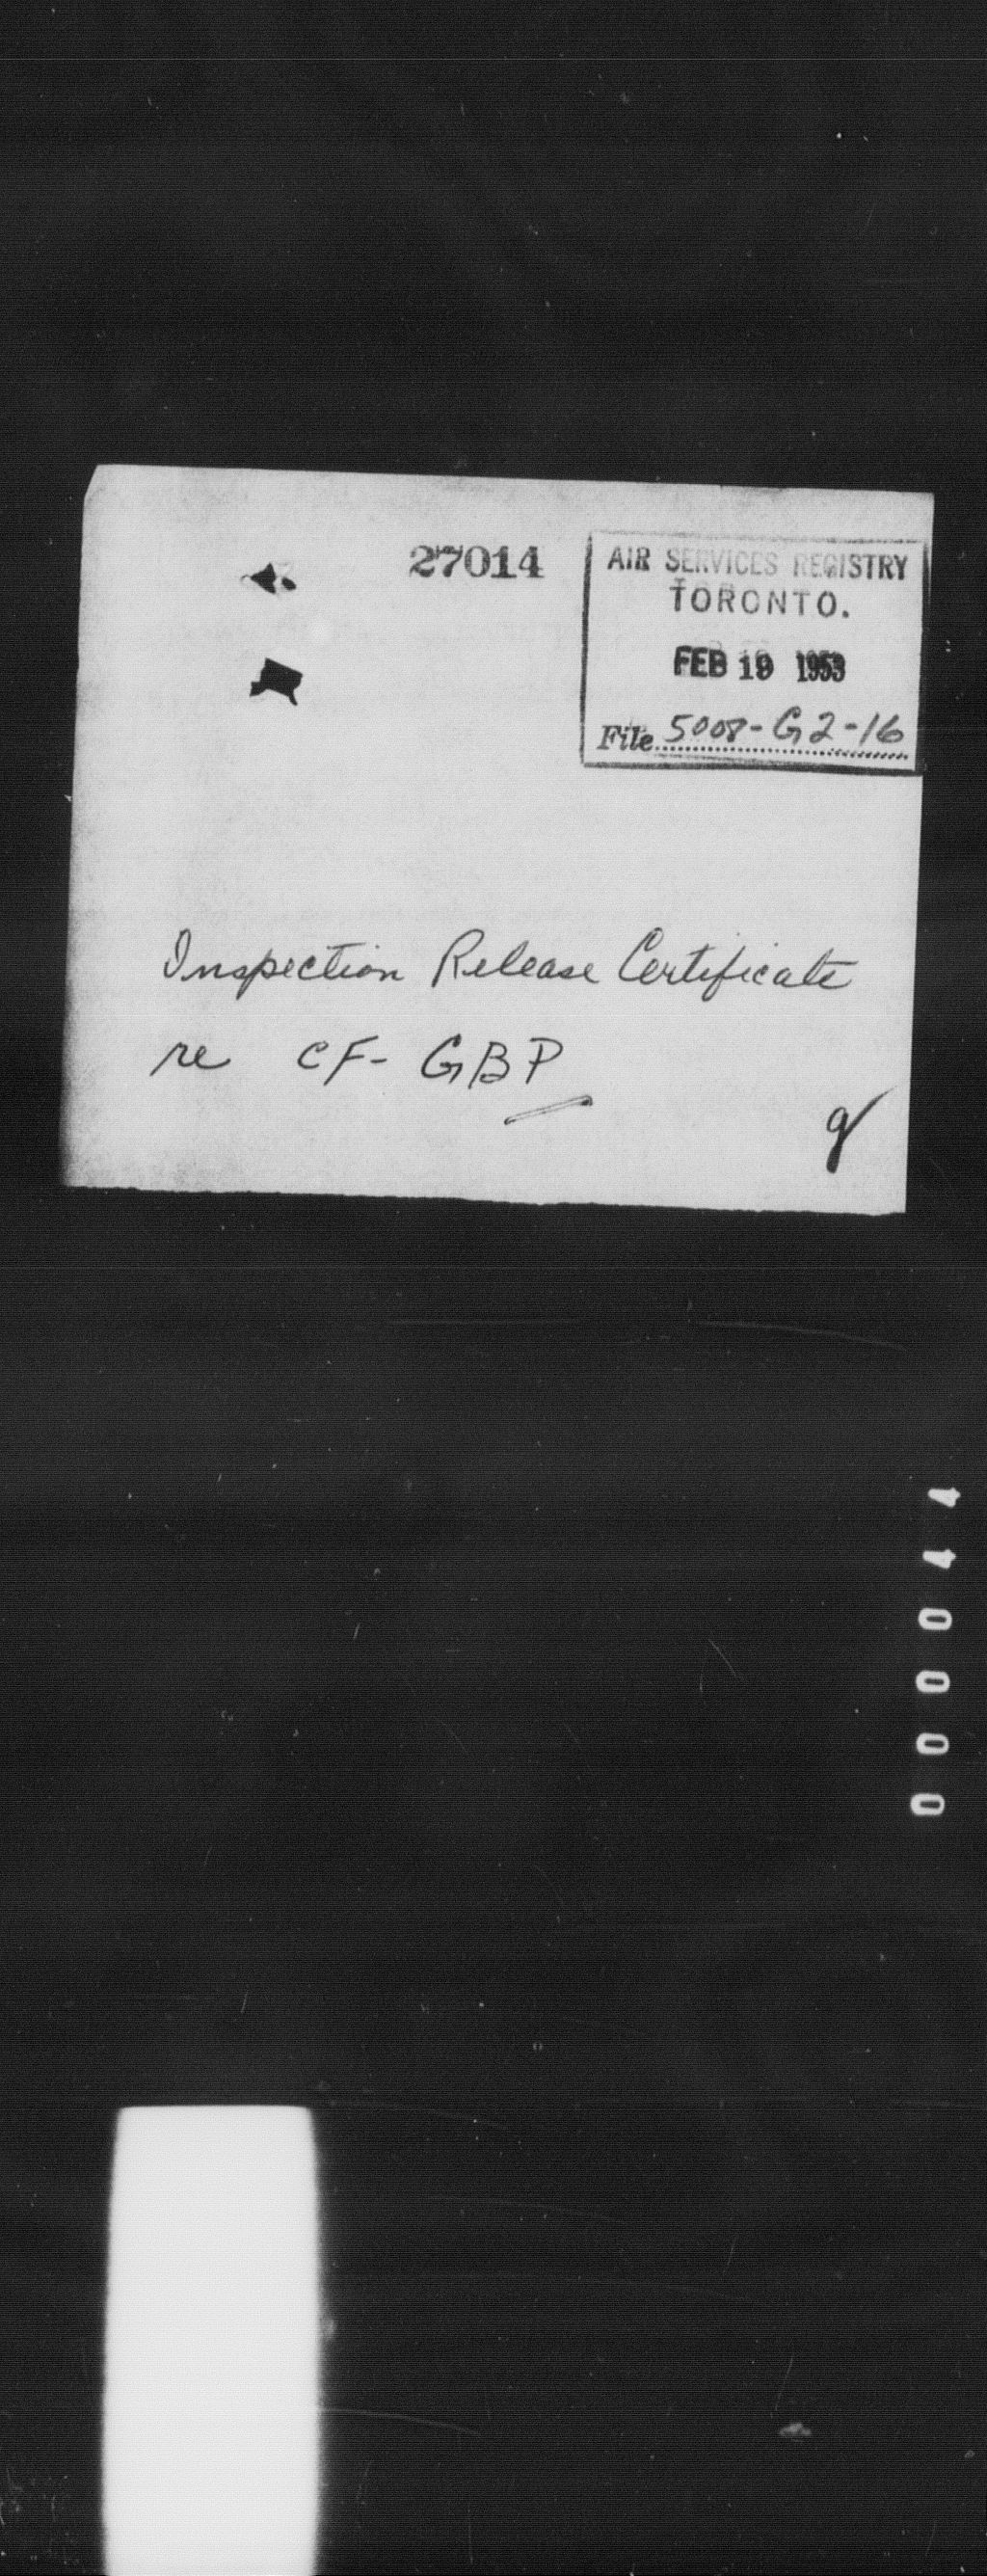 27014
AIR SERVICES REGISTRY
TORONTO.
FEB 19 1953
File 5008-G2-16
Inspection Release Certificate
re CF-GBP
000044